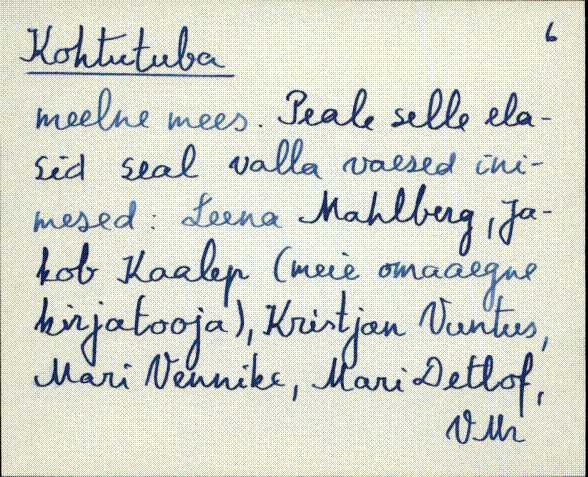 6
Kohtutuba
meelne mees. Peale selle ela-
sid seal valla vaesed ini-
mesed: Leena Mahlberg, Ja-
kob Kaalep (meie omaaegne
kirjatooja), Kristjan Vuntus,
Mari Vennike, Mari Detlof,